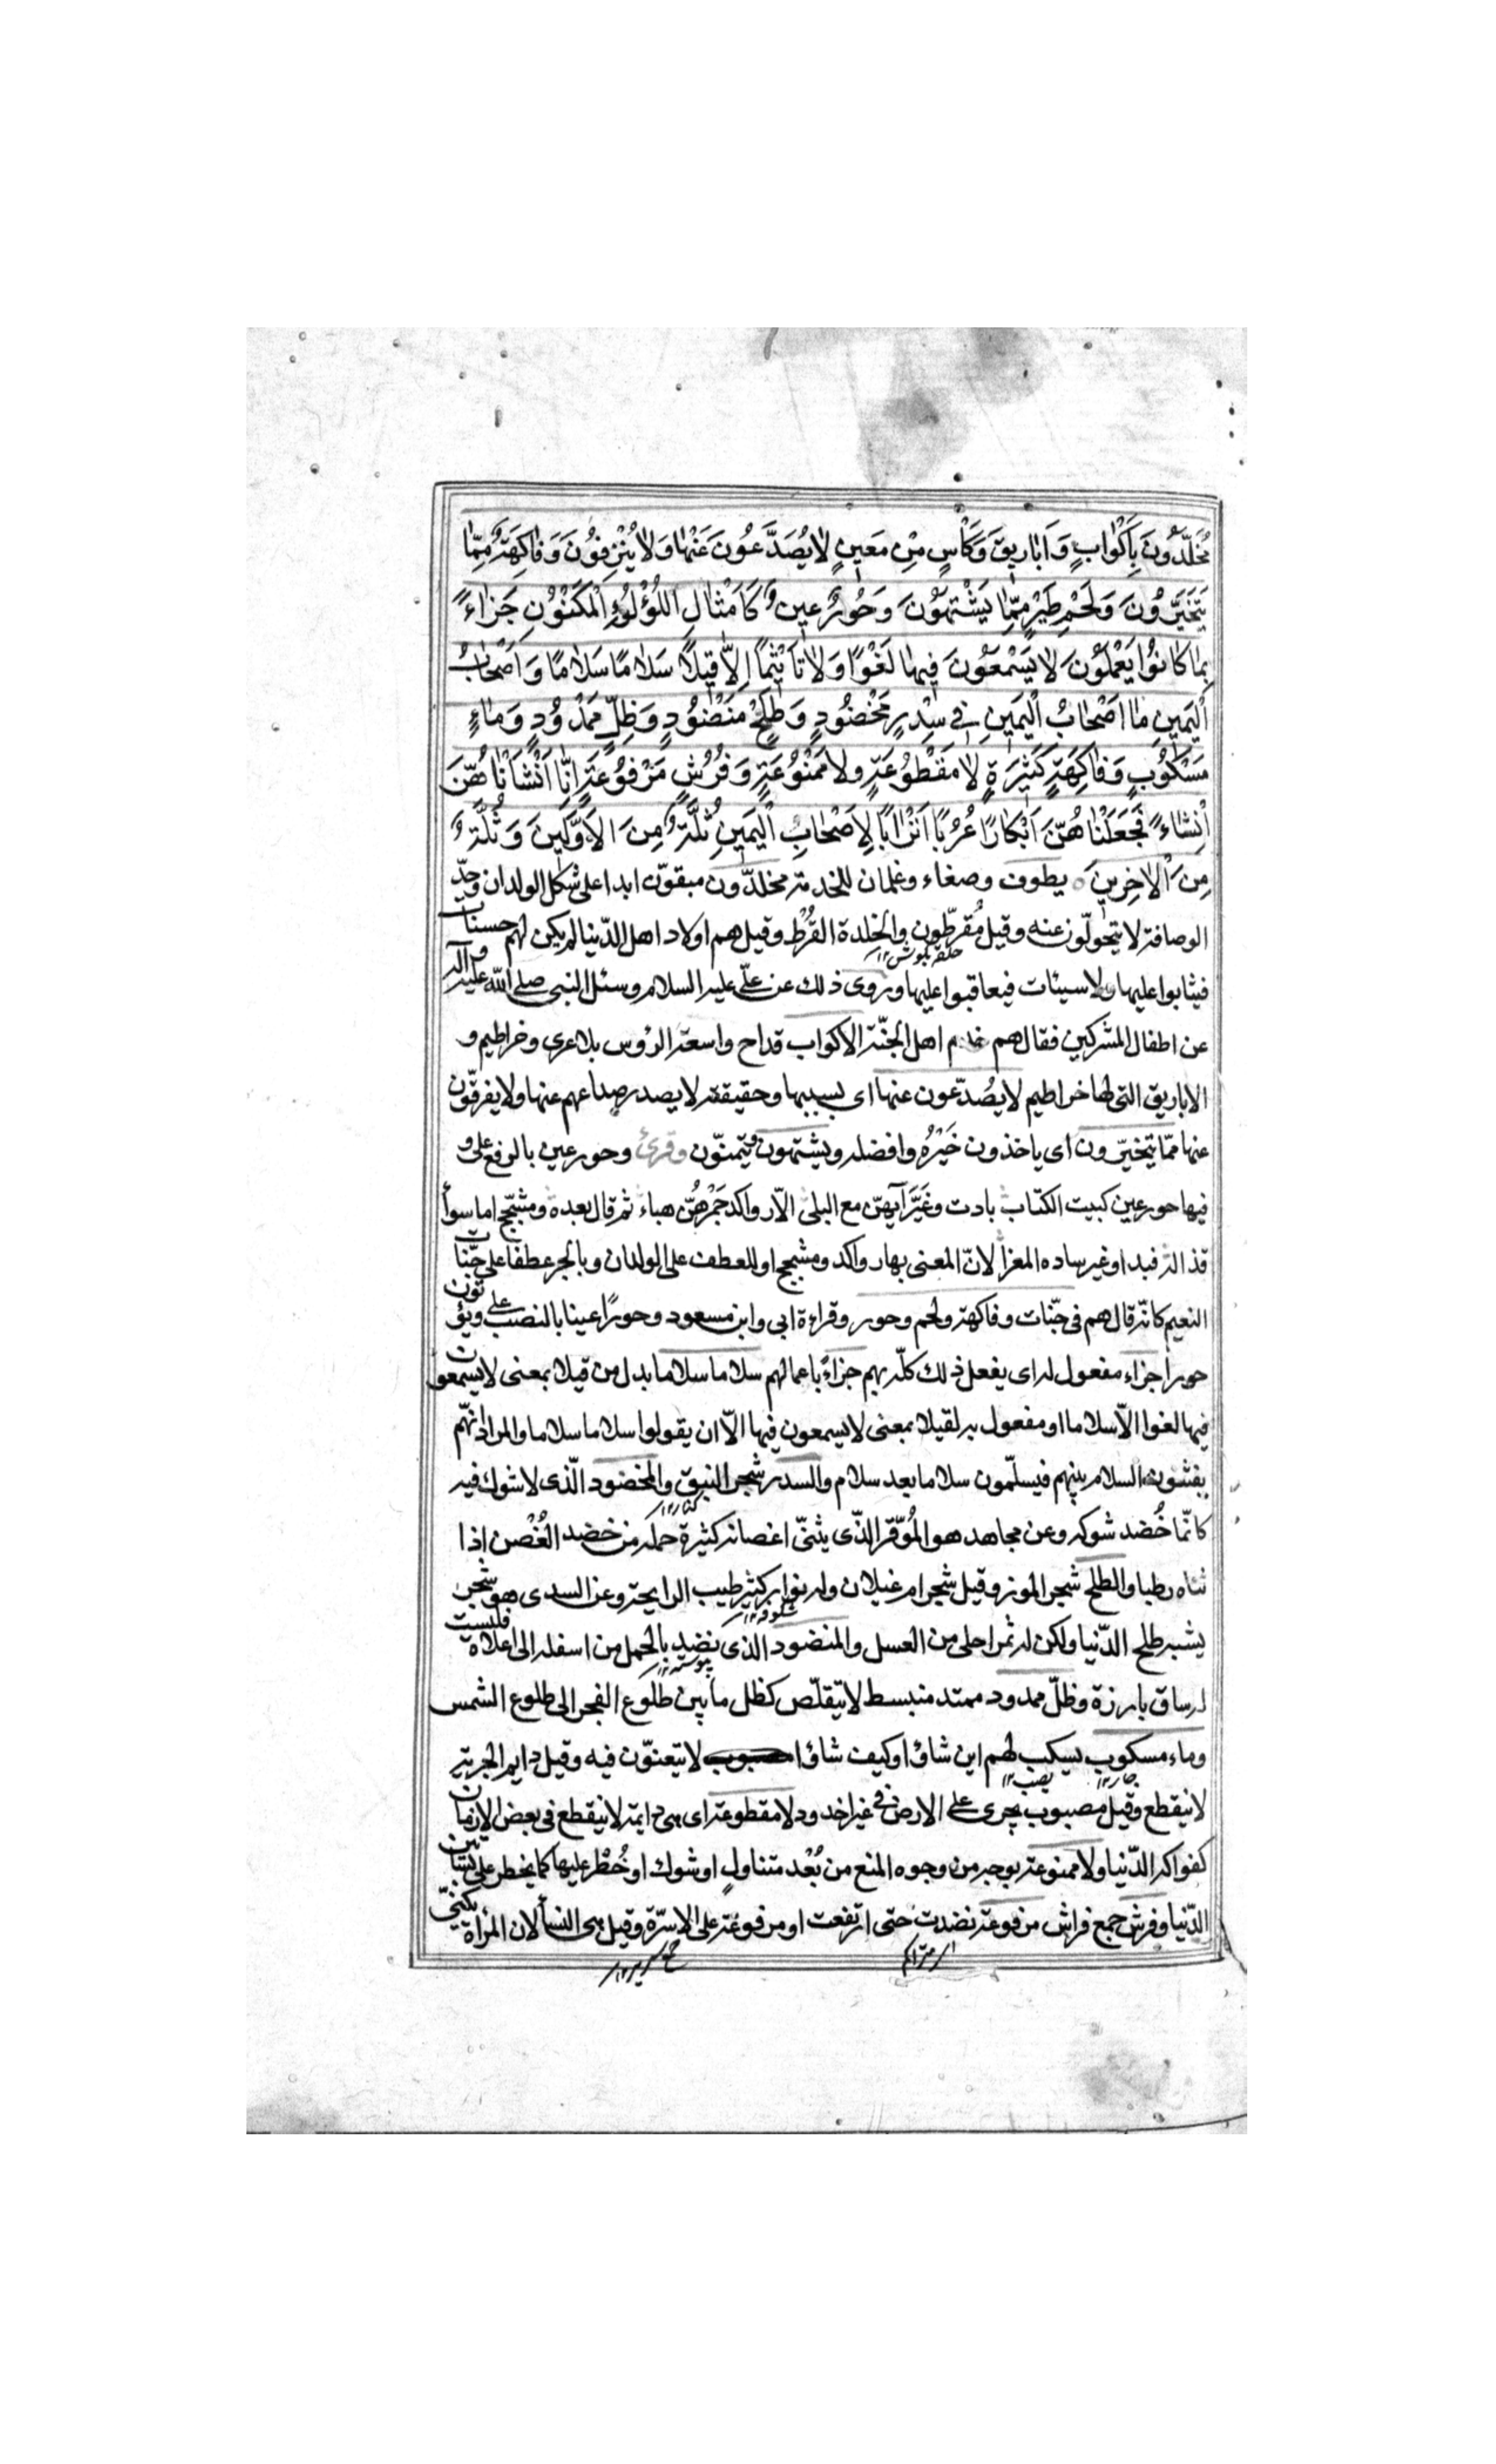 مُخَلَّدُونَ بِاَكْوٰابٍ وَاَبٰارِيقَ وَكَأْسٍ مِنْ مَعِينٍ لٰا يُصَدَّعُونَ عَنْهٰا وَلٰا يُنْزِفُونَ وَفٰاكِهَةٍ مِمّٰا
يَتَخَيَّرُونَ وَلَحْمِ طَيْرٍ مِمّٰا يَشْتَهُونَ وَحُورٌ عِينٌ كَاَمْثٰالِ اللُّؤْلُؤِ الْمَكْنُونِ جَزٰاءً
بِمٰا كٰانُوا يَعْمَلُونَ لٰا يَسْمَعُونَ فِيهٰا لَغْوًا وَلٰا تَأْثِيمًا اِلّٰا قِيلًا سَلٰامًا سَلٰامًا وَاَصْحٰابُ
الْيَمِينِ مٰا اَصْحٰابُ الْيَمِينِ فِي سِدْرٍ مَخْضُودٍ وَطَلْحٍ مَنْضُودٍ وَظِلٍّ مَمْدُودٍ وَمٰاءٍ
مَسْكُوبٍ وَفٰاكِهَةٍ كَثِيرَةٍ لٰا مَقْطُوعَةٍ وَلٰا مَمْنُوعَةٍ وَفُرُشٍ مَرْفُوعَةٍ اِنّٰا اَنْشَأْنٰاهُنَّ
اِنْشٰاءً فَجَعَلْنٰاهُنَّ اَبْكٰارًا عُرُبًا اَتْرٰابًا لِاَصْحٰابِ الْيَمِينِ ثُلَّةٌ مِنَ الْاَوَّلِينَ وَثُلَّةٌ
مِنَ الْاٰخِرِينَ يطوف وصفاء وغلمان للخدمة مخلدّون مبقوّن ابدا على شكل الولدان وحدّ
الوصافة لا يتحولّون عنه وقيل مُقرطّون والخلدة القُرْط وقيل هم اولاد اهل الدّنيا لم يكن لهم حسنات
حلقه بكوش ١٢
فيثابوا عليها ولا سيئات فيعاقبوا عليها وروى ذلك عن علّى عليه السلام وسئل النبى صلى الله عليه وآله
عن اطفال المشركين فقال هم خدم اهل الجنّة الاكواب قداح واسعة الرؤس بلا عرى وخراطيم و
الاباريق التى لها خراطيم لا يُصدّعون عنها اى بسببها وحقيقته لا يصدر صداعهم عنها ولا يفرقّون
عنها ممّا يتخيّرون اى ياخذون خَيْرُه وافضله ويشتهون يتمنّون وقرئ وحور عين بالرفع على و
فيها حور عين كبيت الكتاب بادت وغَيَّرَ آيَهنّ مع البلى الّا رواكد جَمْرهُنّ هباء ثم قال بعده ومشجّج اما سواُ
قذاله فبدا وغير ساده المعزا لانّ المعنى بها رواكد ومشجج او للعطف على الولدان وبالجر عطفا على جنّات
النعيم كانّه قال هم فى جنّات وفاكهة ولحم وحور وقراءة ابى وابن مسعود وحورًا عينا بالنصب على ويؤتون
حورا جزاء مفعول له اى يفعل ذلك كلّه بهم جزاءً باعمالهم سلاما سلاما بدل من قيلا بمعنى لا يسمعون
فيها لغوا الّا سلاما او مفعول به لقيلا بمعنى لا يسمعون فيها الّا ان يقولوا سلاما سلاما والمراد انهّم
يفشون السلام بينهم فيسلّمون سلاما بعد سلام والسدر شجر النبق والمخضود الّذى لا شوك فيه
كانّما خُضد شوكه وعن مجاهد هو المُوقَر الذّى يثنىّ اغصانه كثيرة حمله من خضد الغُصْن اذا
ثناه رطبا والطلح شجر الموز وقيل شجر ام غيلان وله نوار كثير طيب الرايحة وعن السدى هو شجر
شكوفه ١٢
يشبه طلح الدّنيا ولكن له ثمر احلى من العسل والمنضود الذى نضيد بالحمل من اسفله الى اعلاه فليست
له ساق بارزة وظلّ ممدود ممتد منبسط لا يتقلّص كظل ما بين طلوع الفجر الى طلوع الشمس
وماء مسكوب يسكب لهم اين شاؤا وكيف شاؤا لا يتعنوّن فيه وقيل دايم الجرية
لا ينقطع وقيل مصبوب يجرى على الارض فى غير اخدود لا مقطوعة اى هى دايمة لا ينقطع فى بعض الازمان
كفواكه الدّنيا ولا ممنوعة بوجه من وجوه المنع من بُعْد متناولٍ او شوك او خُطْر عليها كما يخطر على بساتين
الدّنيا وفرش جمع فراش مرفوعة نضدت حتى ارتفعت او مرفوعة على الاسرّة وقيل هى النسأ لان المرأة يكنىّ